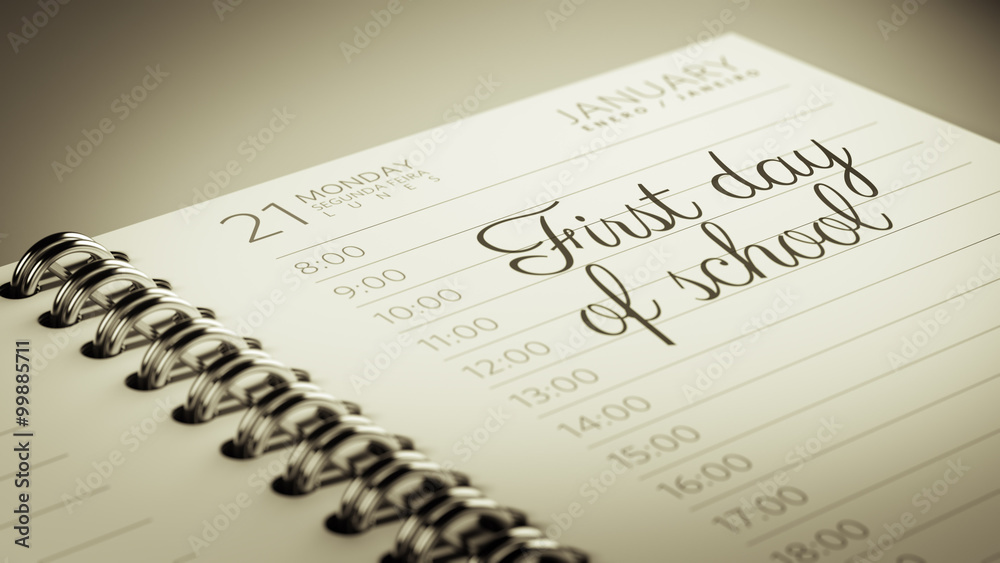 JANUARY
ENERO / JANEIRO
21 MONDAY
SEGUNDA FEIRA
LUNES
First day
of school
8:00
9:00
10:00
11:00
12:00
13:00
14:00
15:00
16:00
17:00
18:00
Adobe Stock | #99885711